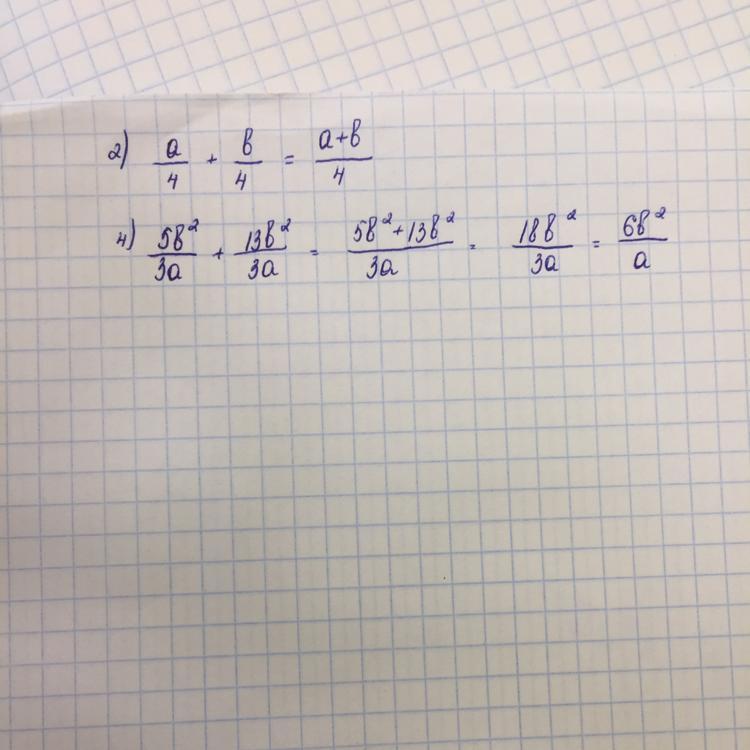 2) a/4 + b/4 = a+b/4
4) 5b²/3a + 13b²/3a = 5b²+13b²/3a = 18b²/3a = 6b²/a